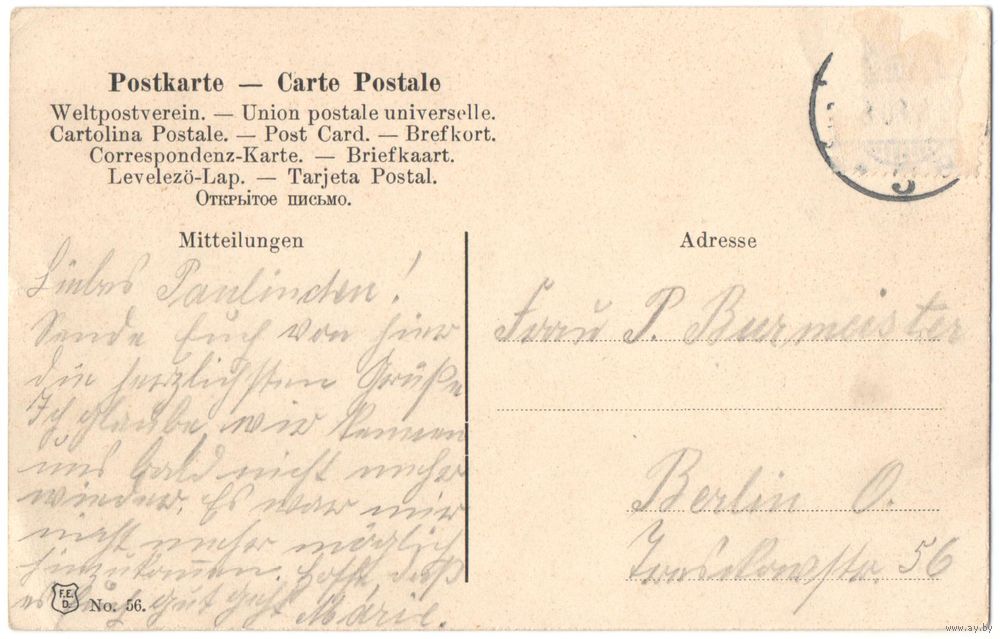 Postkarte — Carte Postale
Weltpostverein. — Union postale universelle.
Cartolina Postale. — Post Card. — Brefkort.
Correspondenz-Karte. — Briefkaart.
Levelezö-Lap. — Tarjeta Postal.
Открытое письмо.
Mitteilungen
Liebes Paulinchen!
Sende Euch von hier
die herzlichsten Grüße
Ich glaube wir kennen
uns bald nicht mehr
wieder. Es war mir
nicht mehr möglich
hinzukommen. Hoffe daß
es Euch gut geht Marie.
F.E.
D.
No. 56.
Adresse
Frau P. Burmeister
Berlin O.
56
www.ay.by